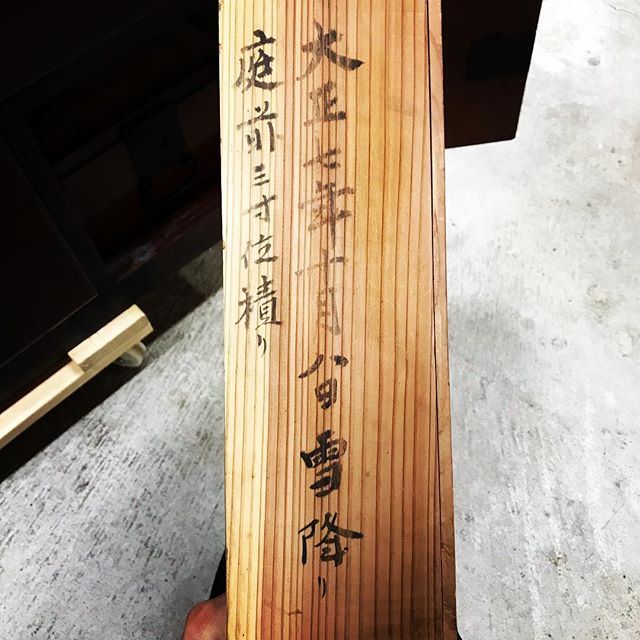 大正七年十月八日雪降り
庭前三寸位積り